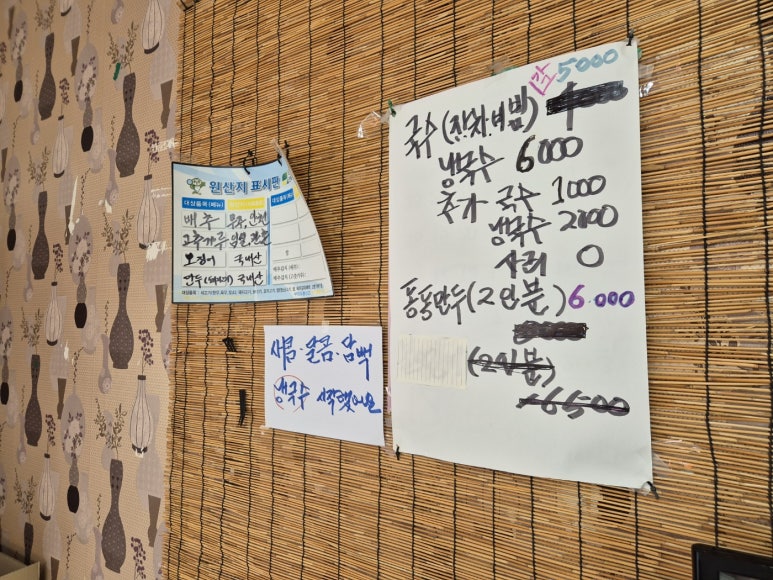 원산지 표시판
대상품목(메뉴)
배추
고추가루
오징어 국내산
만두(돼지고기) 국내산
새콤·달콤·담백
냉국수 시작했어요
각 5000
국수(잔치,비빔)
냉국수 6000
추가 국수 1000
냉국수 2000
사리 0
퐁퐁만두(2인분) 6.000
(2인분)
6500